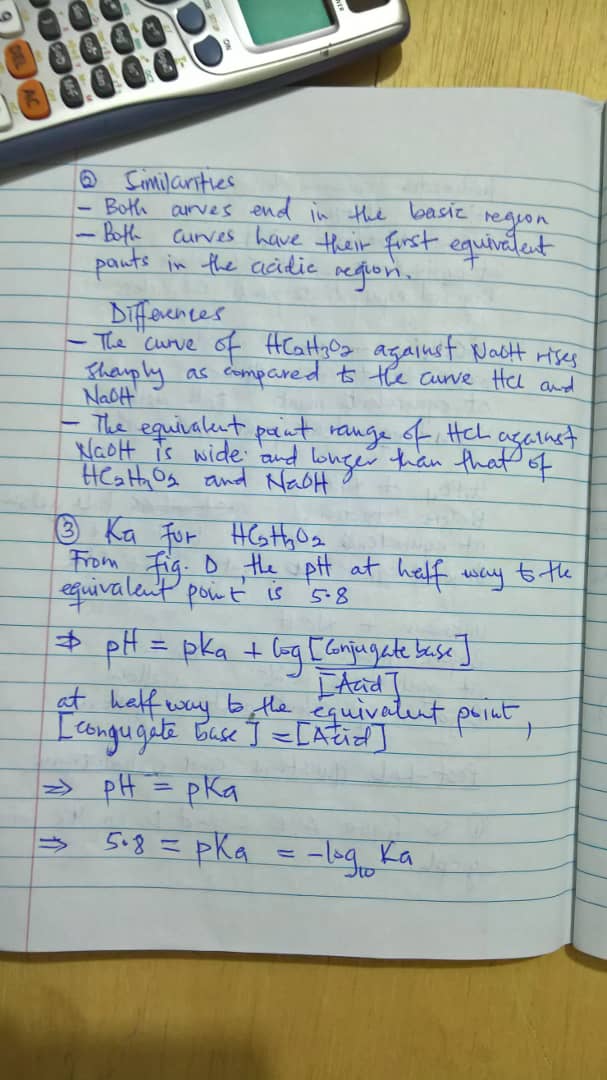 ② Similarities
- Both curves end in the basic region
- Both curves have their first equivalent
points in the acidic region.
Differences
- The curve of HC2H3O2 against NaOH rises
sharply as compared to the curve HCl and
NaOH
- The equivalent point range of HCl against
NaOH is wide and longer than that of
HC2H3O2 and NaOH
③ Ka for HC2H3O2
From Fig. D, the pH at half way to the
equivalent point is 5.8
⇒ pH = pKa + log [Conjugate base]
[Acid]
at half way to the equivalent point,
[conjugate base] = [Acid]
⇒ pH = pKa
⇒ 5.8 = pKa = -log10 Ka
DEL
AC
ON
OFF